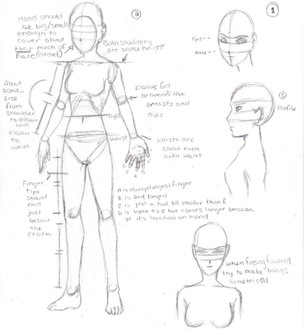 hand should
be big/small
enough to
cover about
that much of
face (circled)
3
1
Both shoulders
are same height
eyes
2
Profile
About
same
size
from
shoulder
to elbow
and
elbow
to wrist
elbows fall
between
and
hips
hips
waist
wrists are
about even
with waist
Finger
tips
should
end
just
below
the
crotch.
A is always longest finger
B is 2nd longest
C is just a tad bit smaller than B
D is same size but
of it's location on hand
when facing forward
try to make things
symmetrical